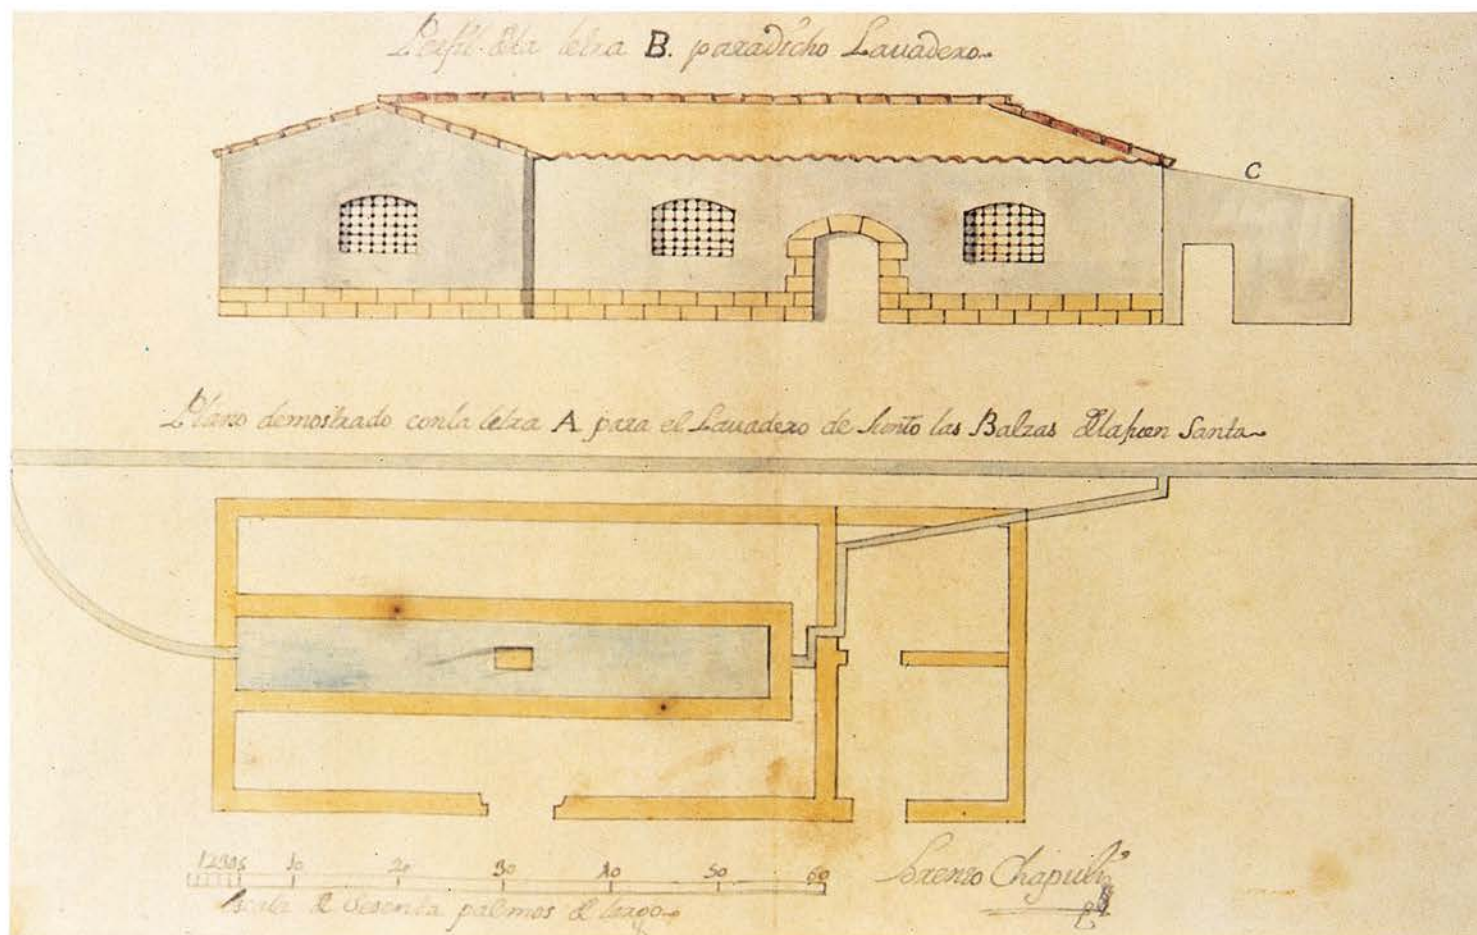 Perfil dla letra B. paradicho Lauadero
C
Plano demostrado conla letra A para el Lauadero de las Balzas Santa
12345 10 20 30 40 50 60
Escala d Sesenta palmos d largo
Lorenzo Chapuli